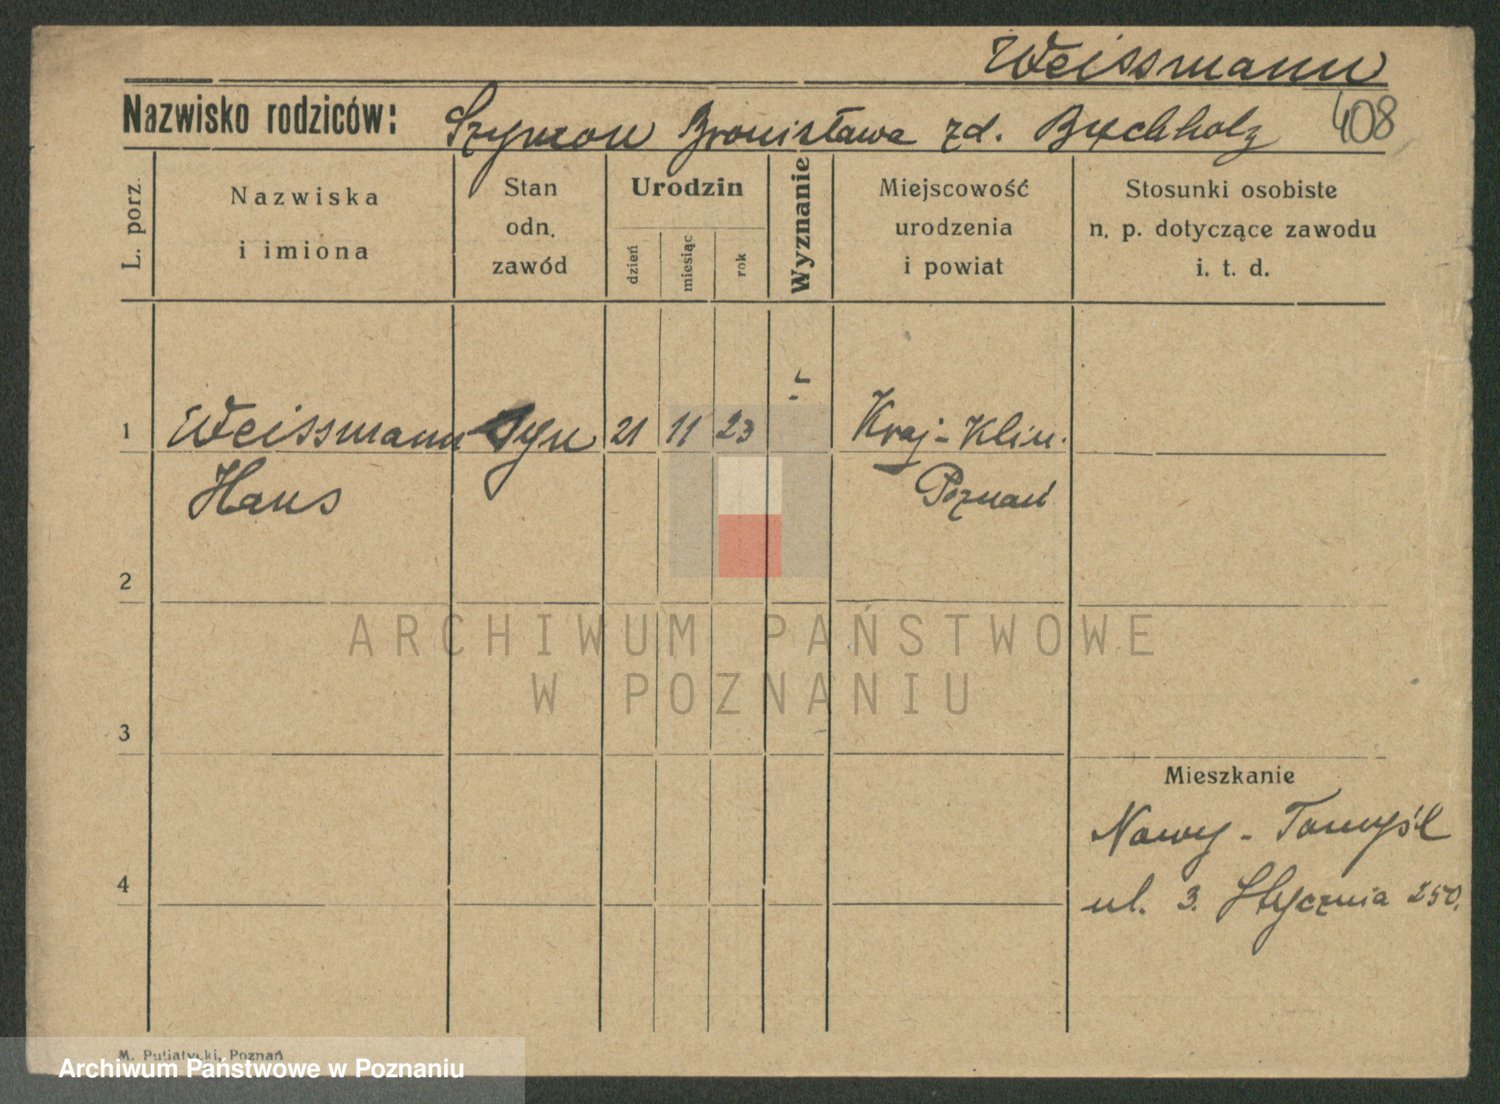 Weissmann
Nazwisko rodziców: Szymon Bronisława zd. Buchholz 408
L. porz.
Nazwiska
i imiona
Stan
odn.
zawód
Urodzin
dzień
miesiąc
rok
Wyznanie
Miejscowość
urodzenia
i powiat
Stosunki osobiste
n. p. dotyczące zawodu
i. t. d.
1 Weissmann Syn 21 11 23 Kraj-Klin.
Hans Poznań
2
ARCHIWUM PAŃSTWOWE
W POZNANIU
3
Mieszkanie
Nowy-Tomyśl
4
ul. 3. Stycznia 250.
M. Putiatycki, Poznań
Archiwum Państwowe w Poznaniu